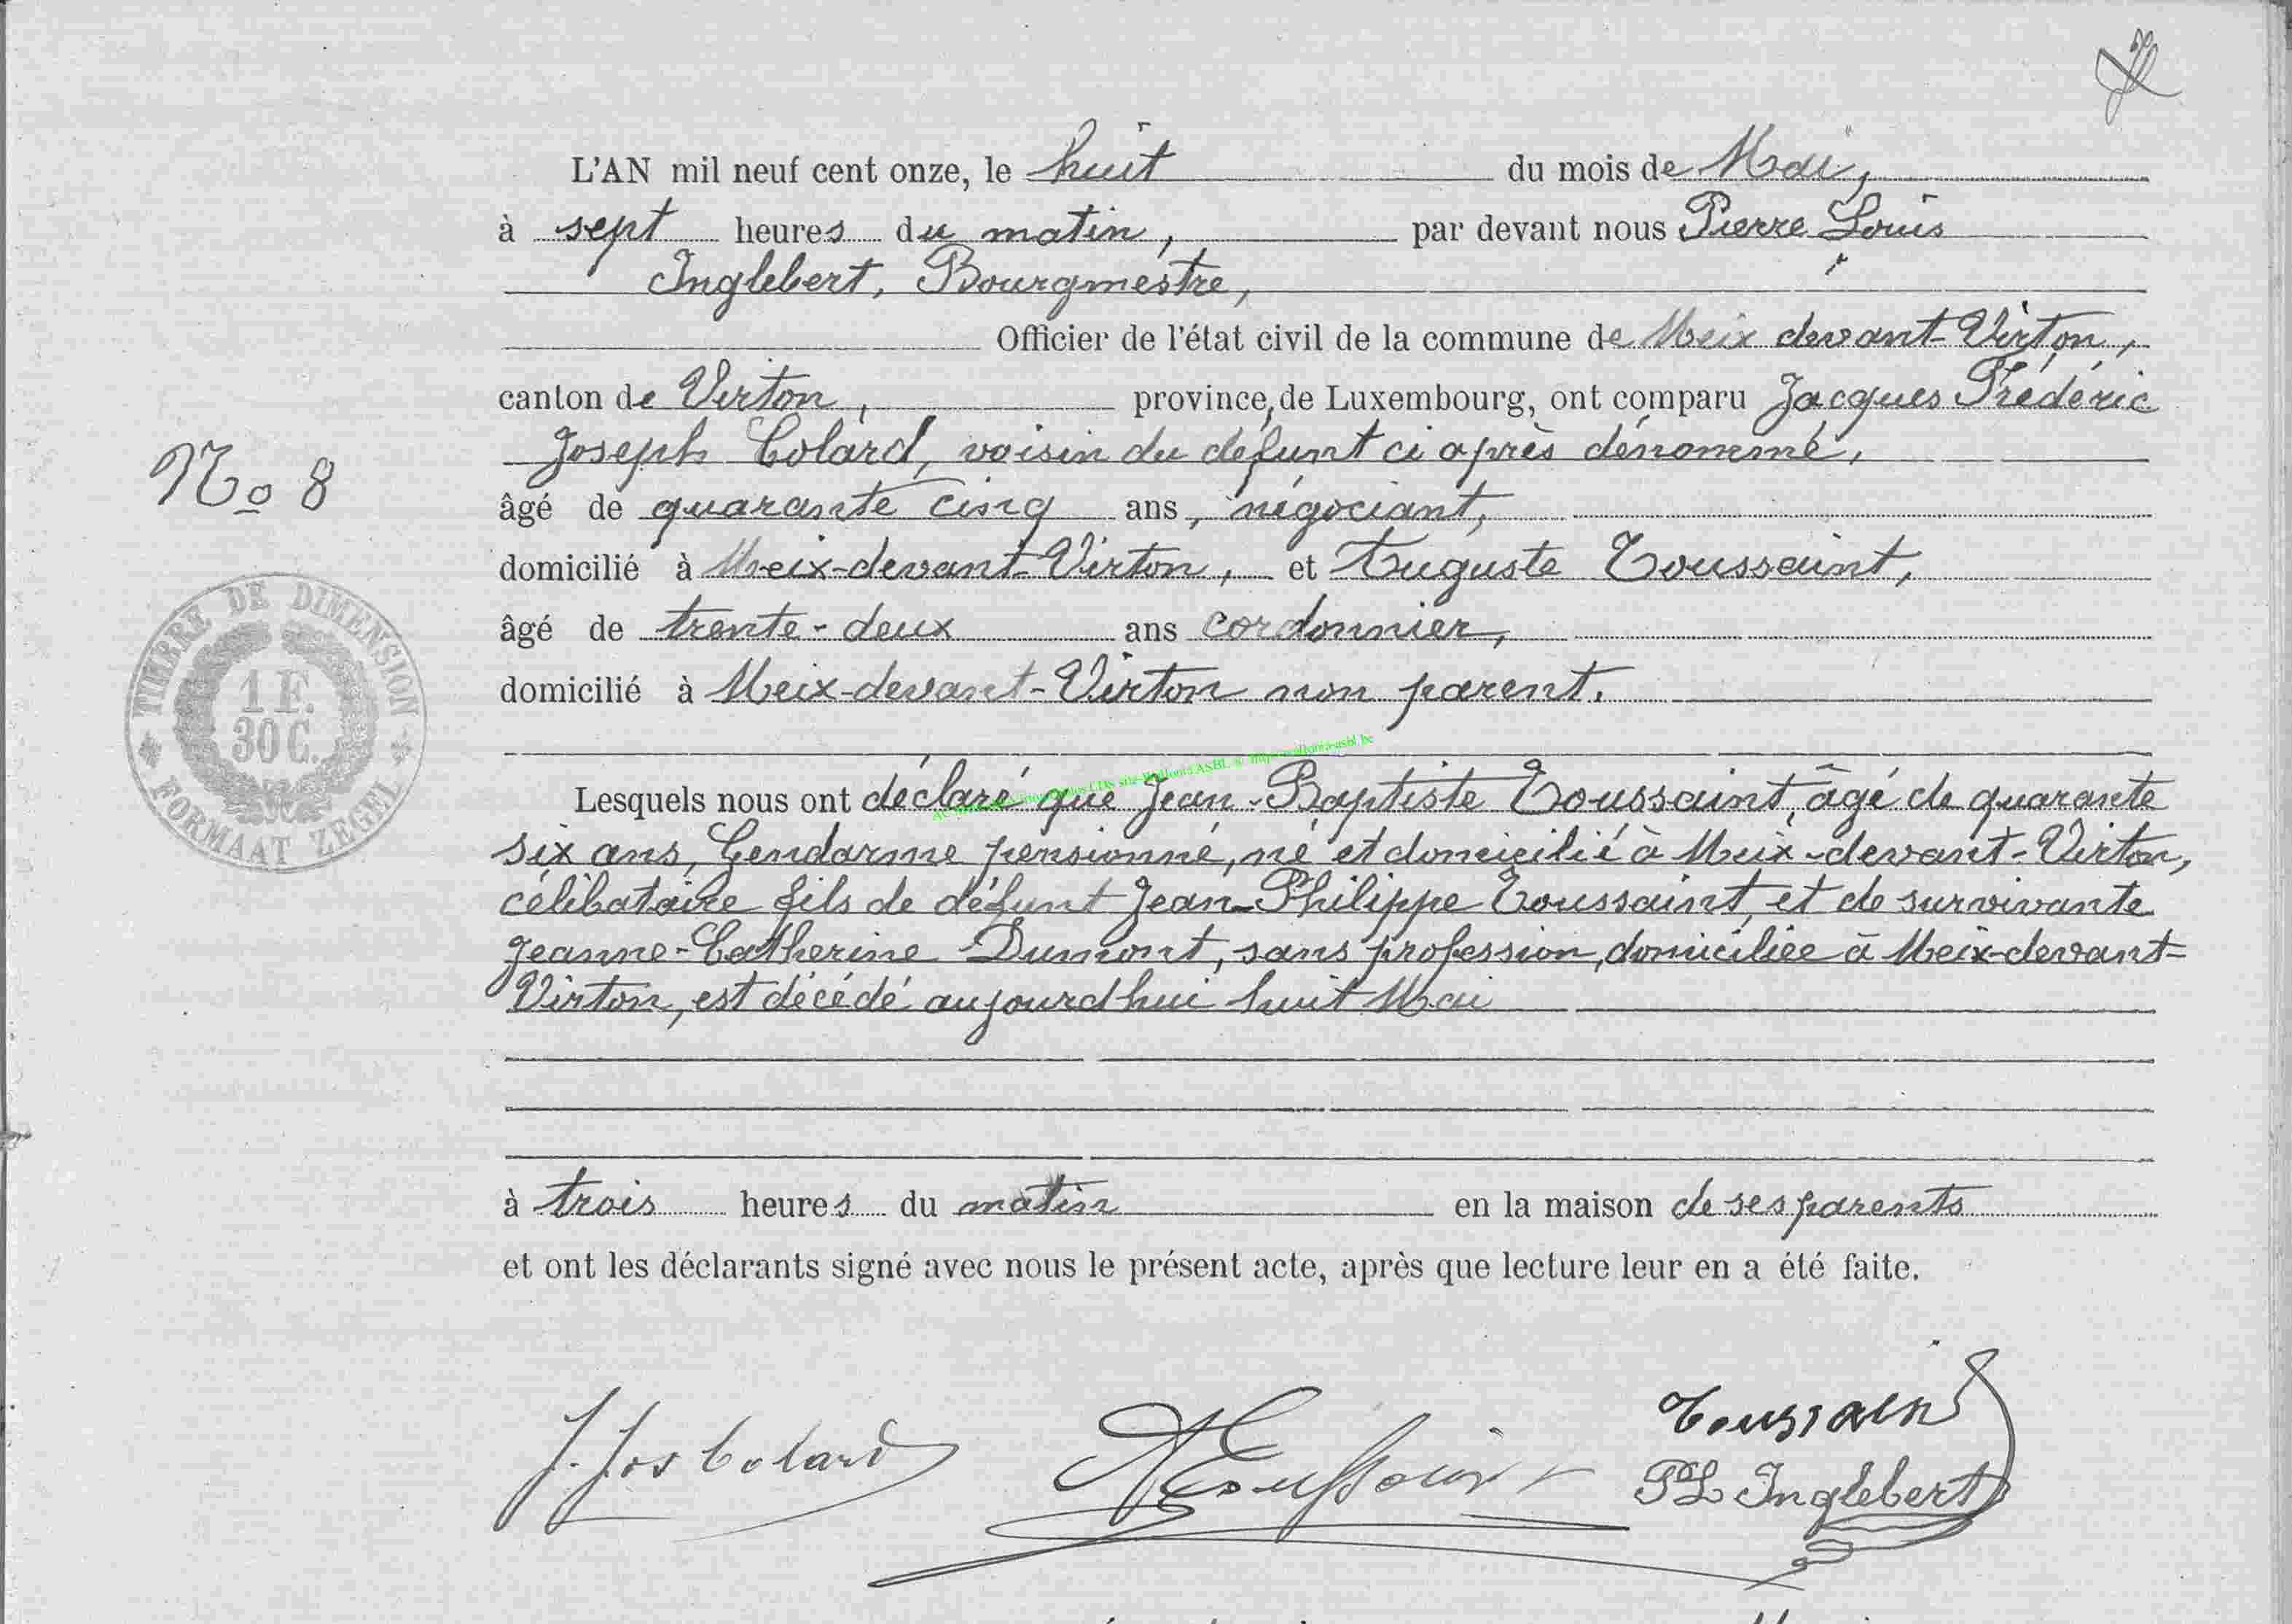 L'AN mil neuf cent onze, le huit du mois de Mai,
à sept heures du matin, par devant nous Pierre Louis
Inglebert, Bourgmestre,
Officier de l'état civil de la commune de Meix devant-Virton,
canton de Virton, province de Luxembourg, ont comparu Jacques Frédéric
Joseph Colard, voisin du défunt ci après dénommé,
No 8
âgé de quarante cinq ans, négociant,
domicilié à Meix-devant-Virton, et Auguste Toussaint,
âgé de trente-deux ans cordonnier,
domicilié à Meix-devant-Virton non parent.
TIMBRE DE DIMENSION
1 F.
30 C.
FORMAAT ZEGEL
Lesquels nous ont déclaré que Jean-Baptiste Toussaint, âgé de quarante
six ans, Gendarme pensionné, né et domicilié à Meix-devant-Virton,
célibataire fils de défunt Jean-Philippe Toussaint, et de survivante
Jeanne-Catherine Dumont, sans profession, domiciliée à Meix-devant-
Virton, est décédé aujourdhui huit Mai
à trois heures du matin en la maison de ses parents
et ont les déclarants signé avec nous le présent acte, après que lecture leur en a été faite.
J. Jos Colard
A Toussaint
Toussaint
PL Inglebert